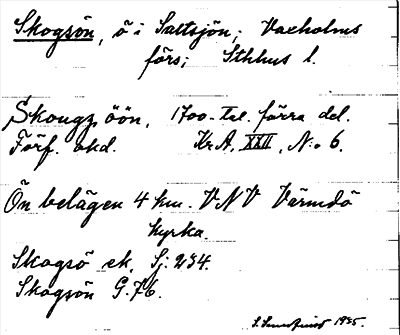 Skogsön, ö i Saltsjön; Vaxholms
förs; Sthlms l.
Skougz öön, 1700-tal. förra del.
Förf. okd. Kr.A, XXII, N:o 6.
Ön belägen 4 km. VNV Värmdö
kyrka.
Skogsö ek. Sj: 234.
Skogsön G. 76.
1935.